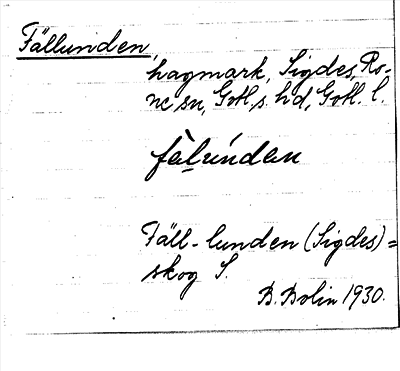 Fällunden,
hagmark, Sigdes, Ro-
ne sn, Gotl. s. hd, Gotl. l.
fàlúndan
Fäll-lunden (Sigdes) =
skog S.
B. Bolin 1930.